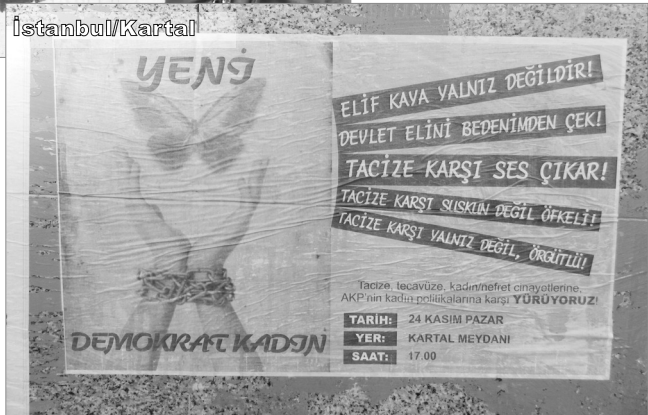 İstanbul/Kartal
YENİ
DEMOKRAT KADIN
ELİF KAYA YALNIZ DEĞİLDİR!
DEVLET ELİNİ BEDENİMDEN ÇEK!
TACİZE KARŞI SES ÇIKAR!
TACİZE KARŞI SUSKUN DEĞİL ÖFKELİ!
TACİZE KARŞI YALNIZ DEĞİL, ÖRGÜTLÜ!
Tacize, tecavüze, kadın/nefret cinayetlerine,
AKP'nin kadın politikalarına karşı YÜRÜYORUZ!
TARİH: 24 KASIM PAZAR
YER: KARTAL MEYDANI
SAAT: 17.00